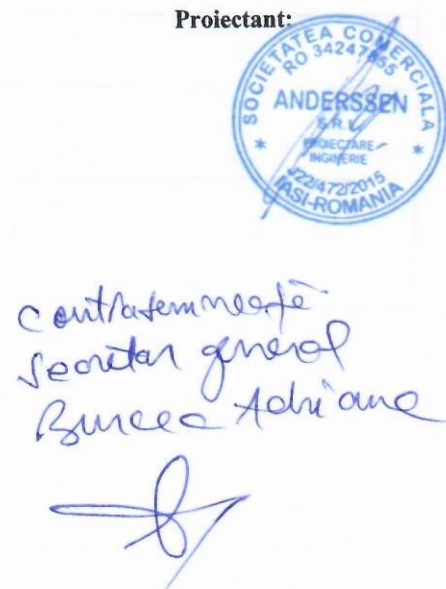 Proiectant:
SOCIETATEA COMERCIALA
RO 34247855
ANDERSSEN
S.R.L.
PROIECTARE
INGINERIE
J22/472/2015
IASI-ROMANIA
Contrasemnează
Secretar general
Adriana